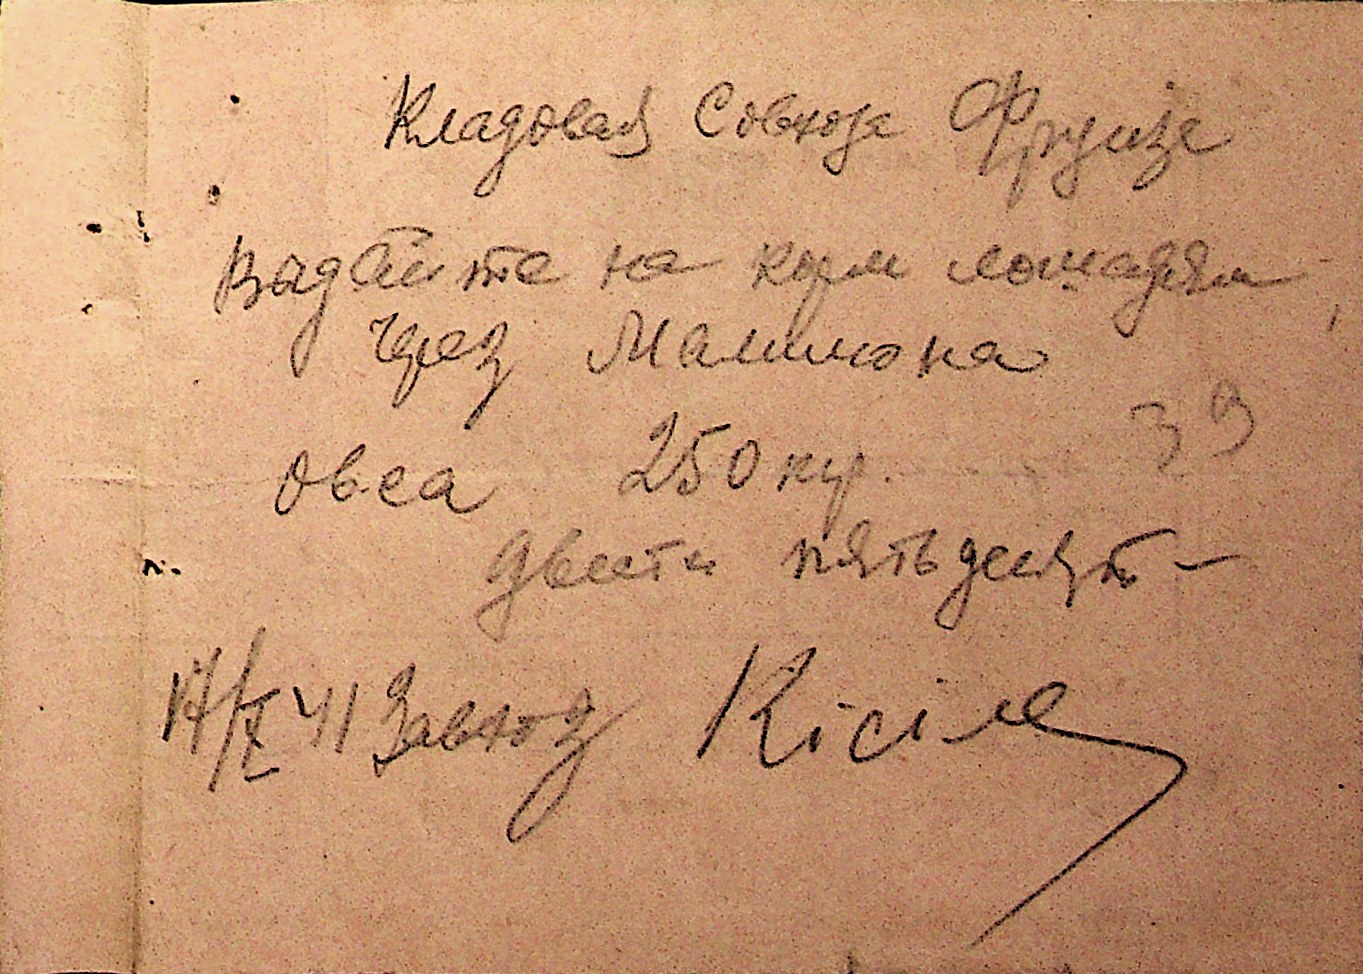 Кладовая Совхоза Фрунзе
Видайте на корм лошадям
через
овса 250 кгр.
39
двести пятьдесят —
41 Завхоз Кісіль